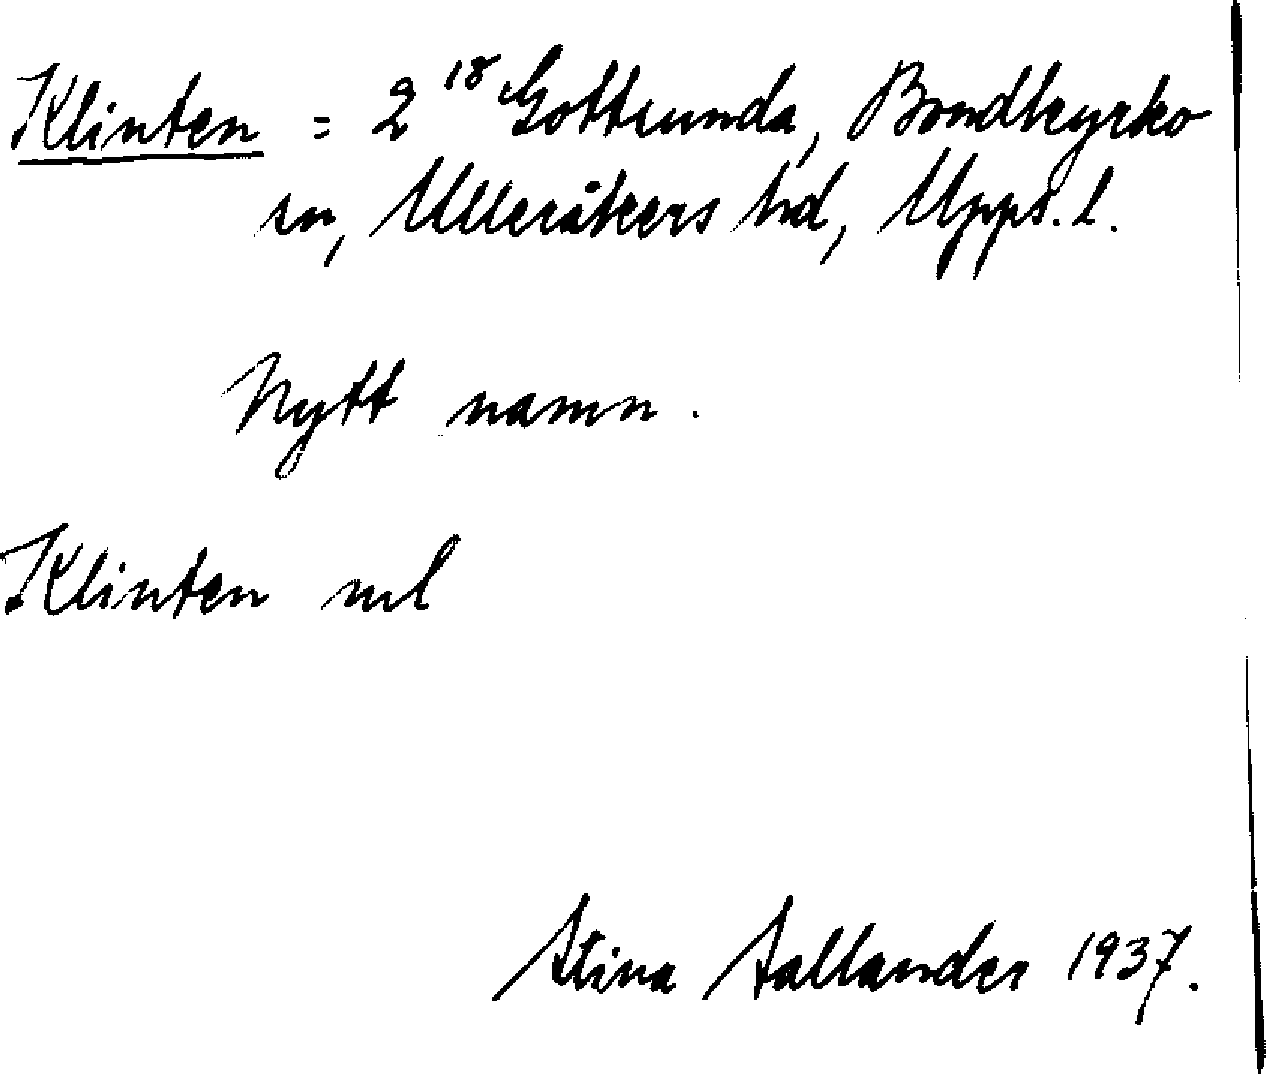 Klinten = 2¹⁸ Gottsunda, Bondkyrko
sn, Ulleråkers hd, Upps. l.
Nytt namn.
Klinten ml
Stina Sallander 1937.